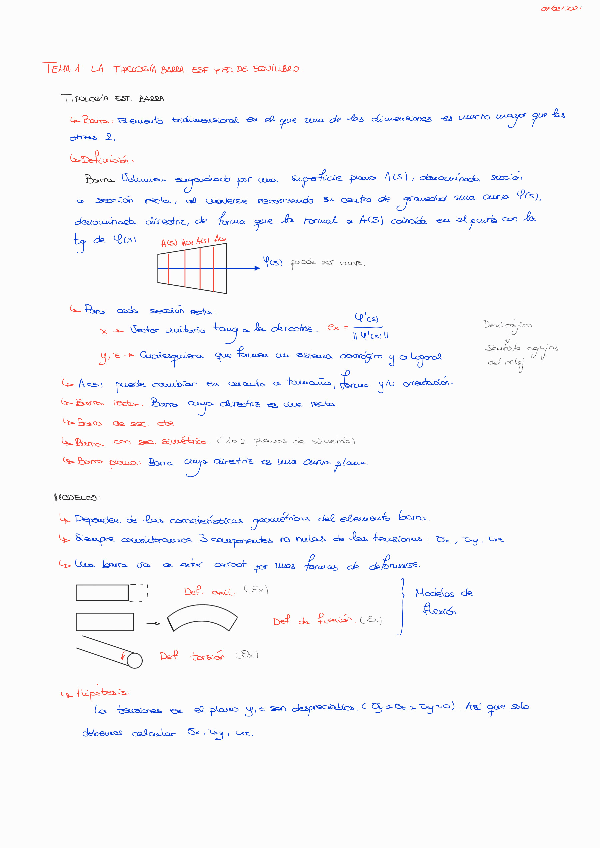 TEMA 1 LA TIPOLOGÍA BARRA ESF Y DE EQUILIBRIO
TIPOLOGÍA EST. BARRA
↳ Barra: Elemento tridimensional en el que una de las dimensiones es mucho mayor que las
otras 2.
↳ Definición:
Barra Volumen engendrado por una superficie plana A(s), denominada sección
o sección recta, al moverse recorriendo su centro de gravedad una curva φ(s),
denominada directriz, de forma que la normal a A(s) coincida en el punto con la
tg de φ(s)
A(s) A(s) A(s) A(s)
φ(s) puede ser curva.
↳ Para cada sección recta
x → Vector unitario tang a la directriz. eₓ = φ'(s) / ||φ'(s)||
y, z → Cualesquiera que formen un sistema y ortogonal
↳ A(s) puede cambiar en cuanto a tamaño, forma y/o orientación.
↳ Barra recta: Barra cuya directriz es una recta
↳ Barra de sec. cte
↳ Barra con sec. simétrica (2 planos de simetría)
↳ Barra plana: Barra cuya directriz es una curva plana.
MODELOS
↳ Dependen de las características geométricas del elemento barra.
↳ Siempre consideramos 3 componentes no nulas de las tensiones
↳ Una barra va a estar por unas formas de deformarse.
Def. axil. (Fx)
Def. de flexión.
Modelos de
flexión
Def torsión
↳ Hipótesis
Las tensiones en el plano y, z son despreciables Así que solo
debemos calcular